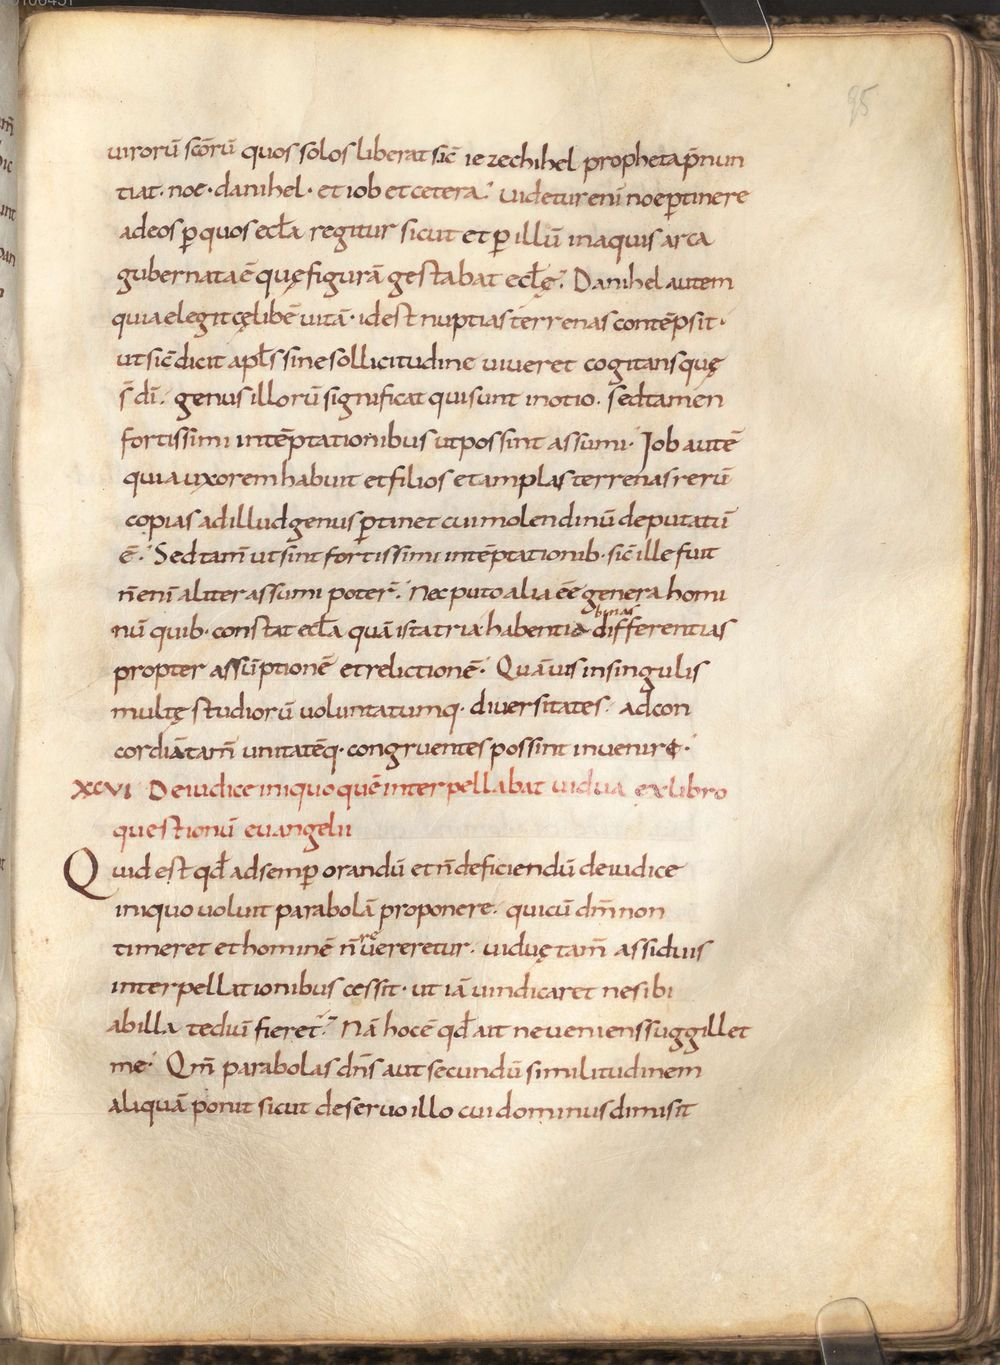 95
uirorū scōrū quos solos liberat sic̄ iezechihel propheta p̄nun
tiat· noe· danihel· et iob et cetera.' Videtur enī noe ꝑtinere
ad eos ꝑ quos eccła regitur sicut et ꝑ illū in aquis arca
gubernata ē quę figurā gestabat eccłę.' Danihel autem
quia elegit cęlibē uitā· id est nuptias terrenas contēpsit·
ut sic̄ dicit apłs sine sollicitudine uiueret cogitans quę
s̄ dī.' genus illorū significat qui sunt in otio. sed tamen
fortissimi in tēptationibus ut possint assumi· Iob autē
quia uxorem habuit et filios et amplas terrenas rerū
copias ad illud genus ꝑtinet cui molendinū deputatū
ē.' Sed tam̄ ut sint fortissimi in tēptationib· sic̄ ille fuit
n̄ enī aliter assumi poter̄.' Nec puto alia ēē genera homi
nū quib· constat eccła quā ista tria habentia binas differentias
propter assūptionē et relictionē.' Quāuis in singulis
multę studiorū uoluntatumq· diuersitates· ad con
cordiā tam̄ unitatēq· congruentes possint inuenire·'
XCVI De iudice iniquo quē interpellabat uidua ex libro
questionū euangelii
Quid est qđ ad semꝑ orandū et n̄ deficiendū de iudice
iniquo uoluit parabolā proponere· qui cū dm̄ non
timeret et hominē n̄ reuereretur· uiduę tam̄ assiduis
interpellationibus cessit· ut iā uindicaret ne sibi
ab illa tediū fieret.' Nā hoc ē qđ ait ne ueniens suggillet
me·' Qm̄ parabolas dn̄s aut secundū similitudinem
aliquā ponit sicut de seruo illo cui dominus dimisit